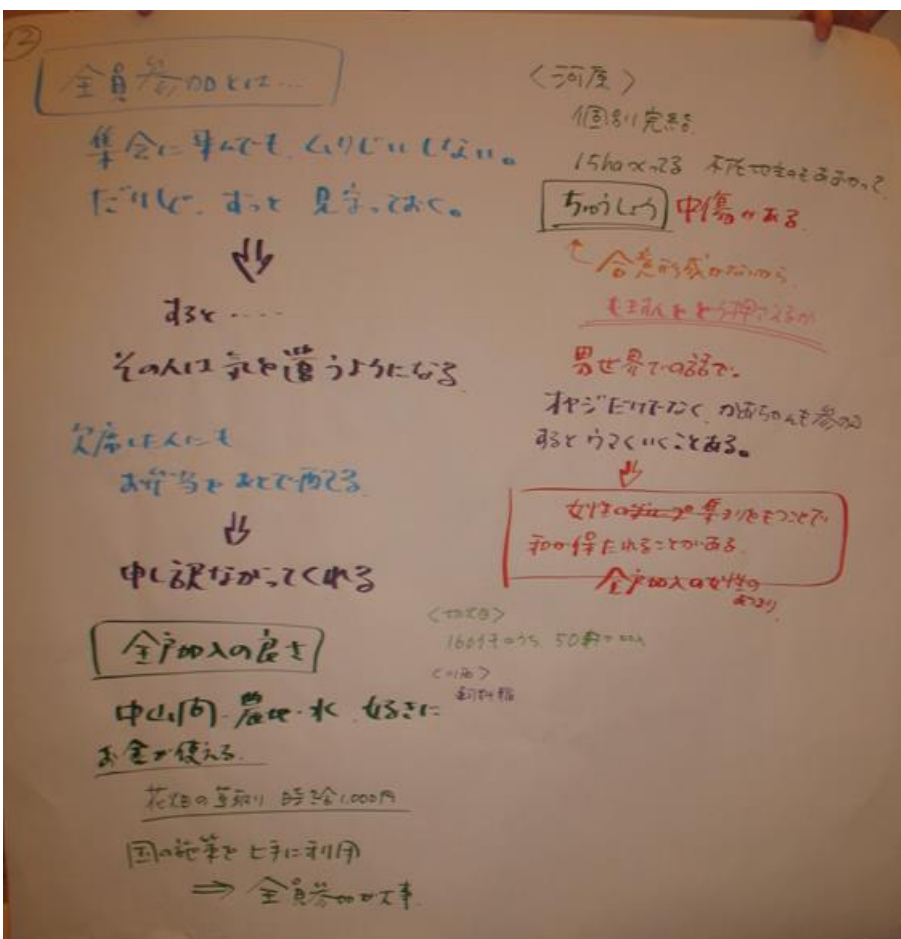 12
全員参加とは…
集会に来んでも、ムリじいしない。
だけど、ずっと 見守っておく。
すると‥‥
その人は気を遣うようになる
欠席した人にも
お弁当をあとで配る
申し訳ながってくれる
全戸加入の良さ
中山間・農地・水 好きに
お金が使える。
花畑の草取り 時給1,000円
国の施策を上手に利用
⇒ 全員参加が大事
〈河原〉
個別完結
15ha
ちゅうしょう 中傷がある
合意形成がないから
をどう押さえるか
男世界での話で。
オヤジだけでなく、かあちゃんも参加
するとウマくいくことある。
女性の 集まりをもつことで
和が保たれることがある
全戸加入の女性の
あつまり
160 のうち 50軒
飼料稲